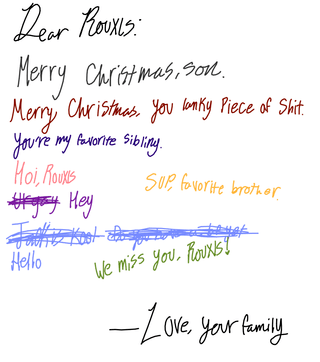 Dear Rouxls:
Merry Christmas, son.
Merry, Christmas, you lanky Piece of Shit.
You're my favorite sibling.
Hoi, Rouxls
Sup, favorite brother.
Hey
Hello
We miss you, Rouxls!
—Love, your family